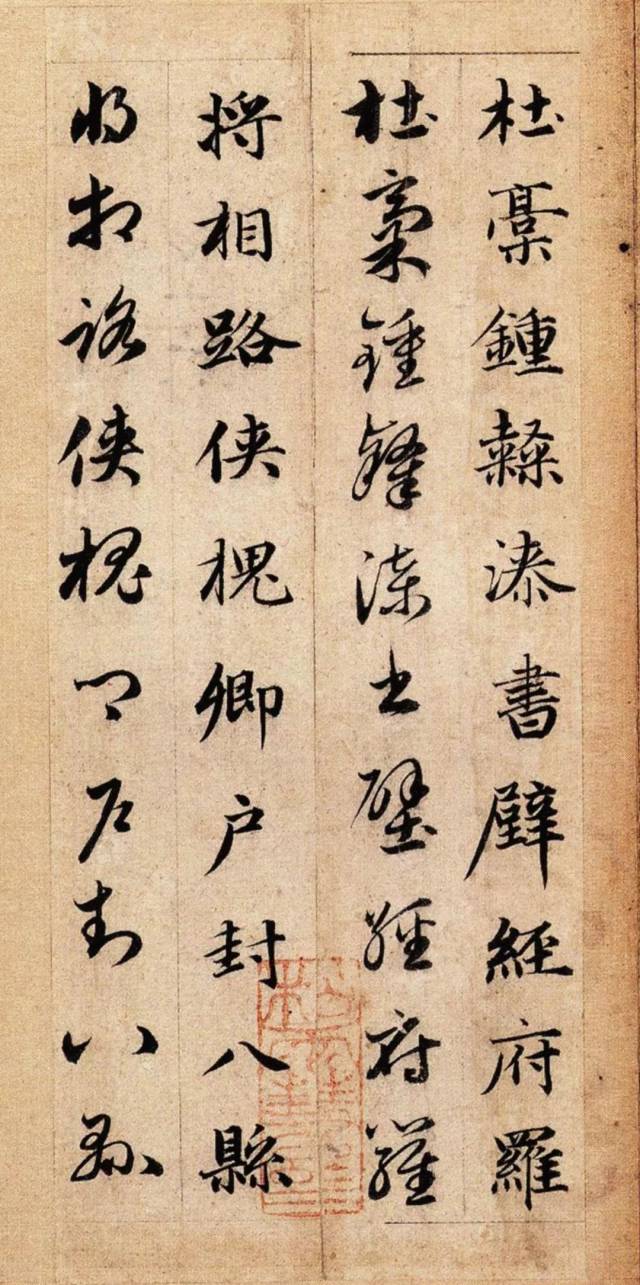 杜稾鍾隸漆書壁經府羅
杜稾鍾隸漆書壁經府羅
將相路俠槐卿戶封八縣
將相路俠槐卿戶封八縣